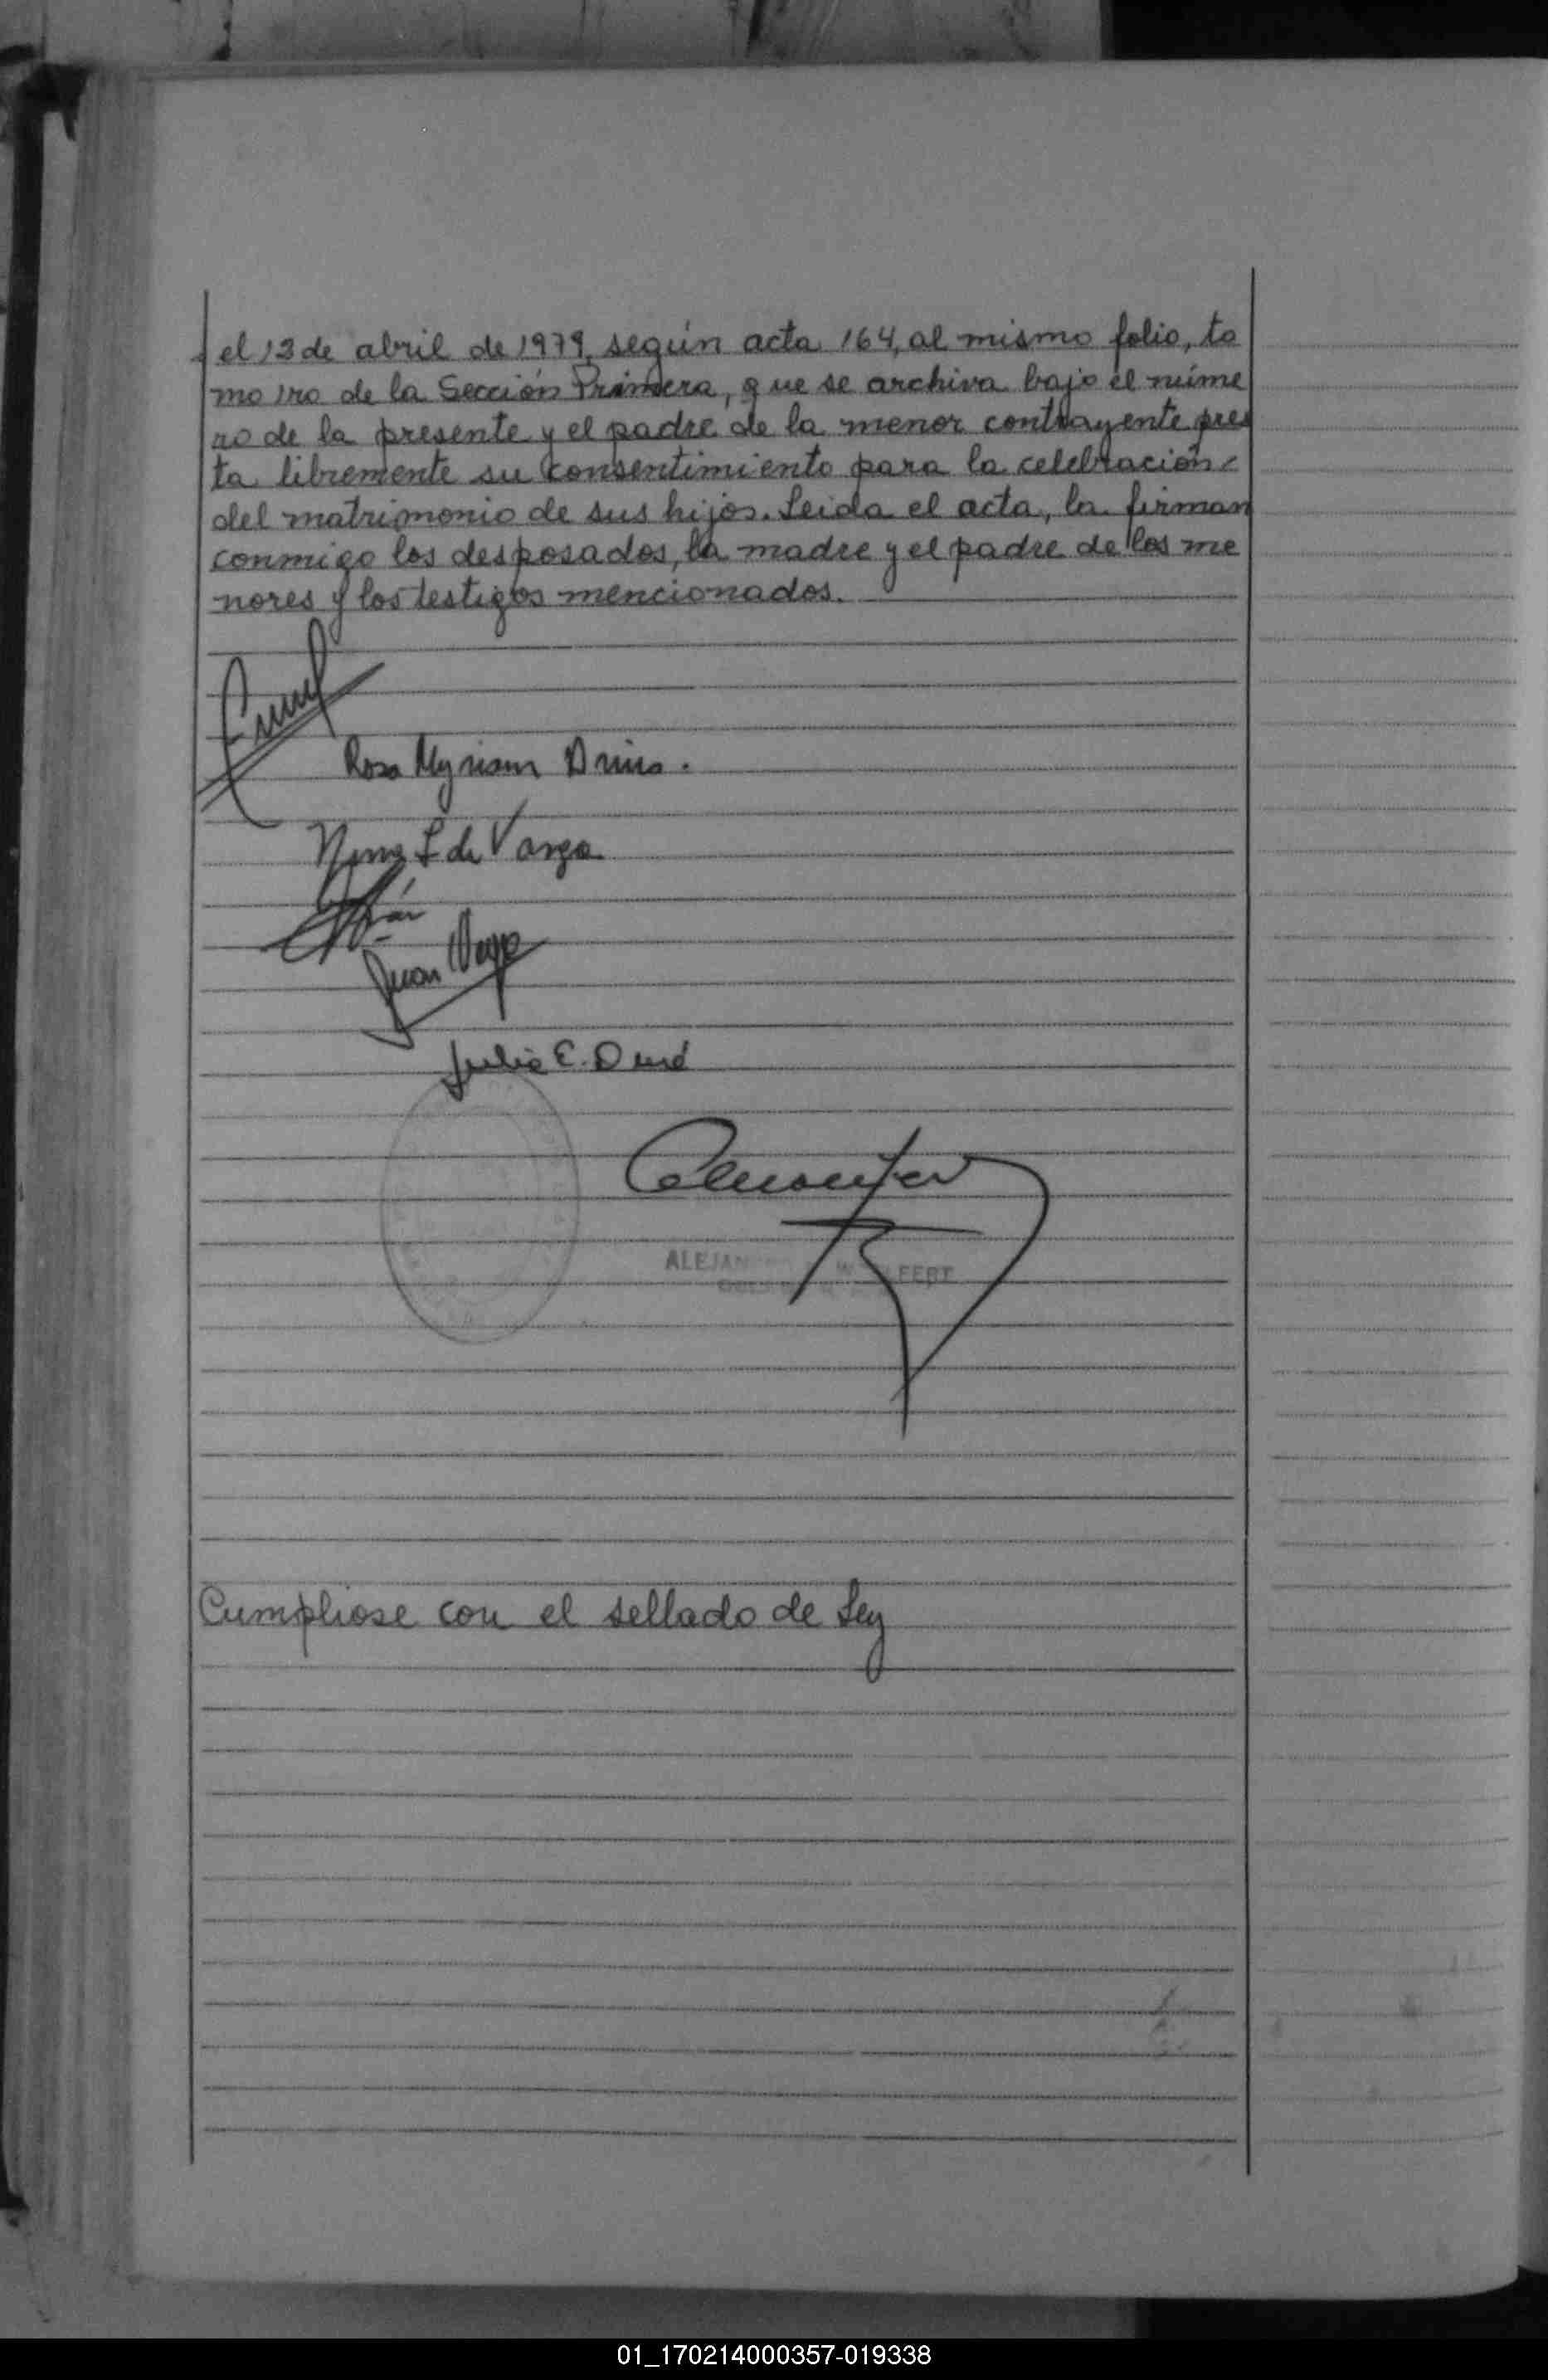 el 13 de abril de 1979, según acta 164, al mismo folio, to
mo 1ro de la Sección Primera, que se archiva bajo el núme
ro de la presente y el padre de la menor contrayente pres
ta libremente su consentimiento para la celebración
del matrimonio de sus hijos. Leida el acta, la firman
conmigo los desposados, la madre y el padre de los me
nores y los testigos mencionados.
Rosa Myriam
de Varga
Juan
Julio E.
ALEJAN
FERT
Cumpliose con el sellado de Ley
01_170214000357-019338